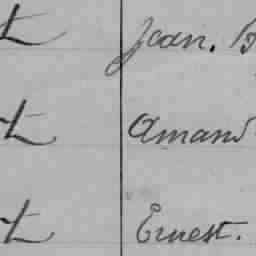 t Jean. B
t Amand
t Ernest.